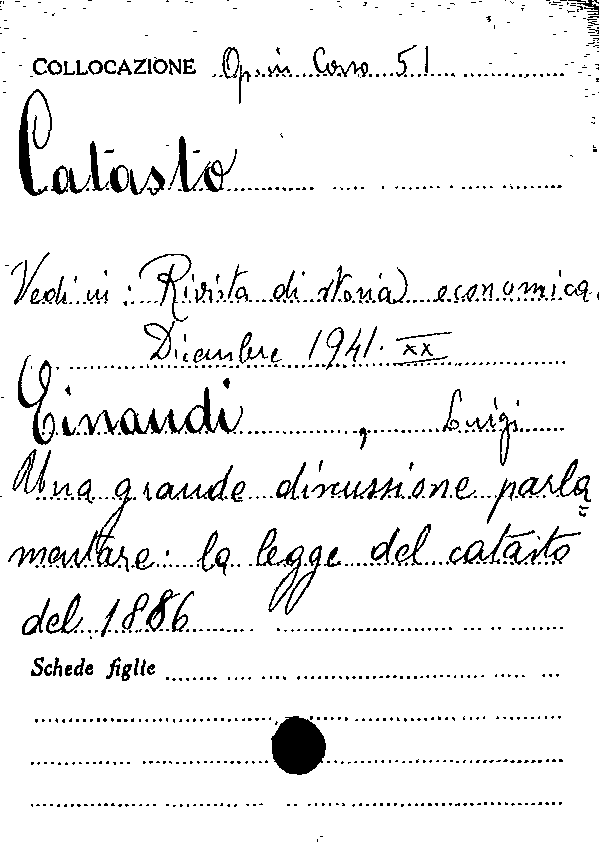 COLLOCAZIONE Op. in Corso 51
Catasto
Vedi in: Rivista di storia economica.
Dicembre 1941. XX
Einaudi, Luigi
Una grande discussione parla=
mentare: la legge del catasto
del 1886
Schede figlie